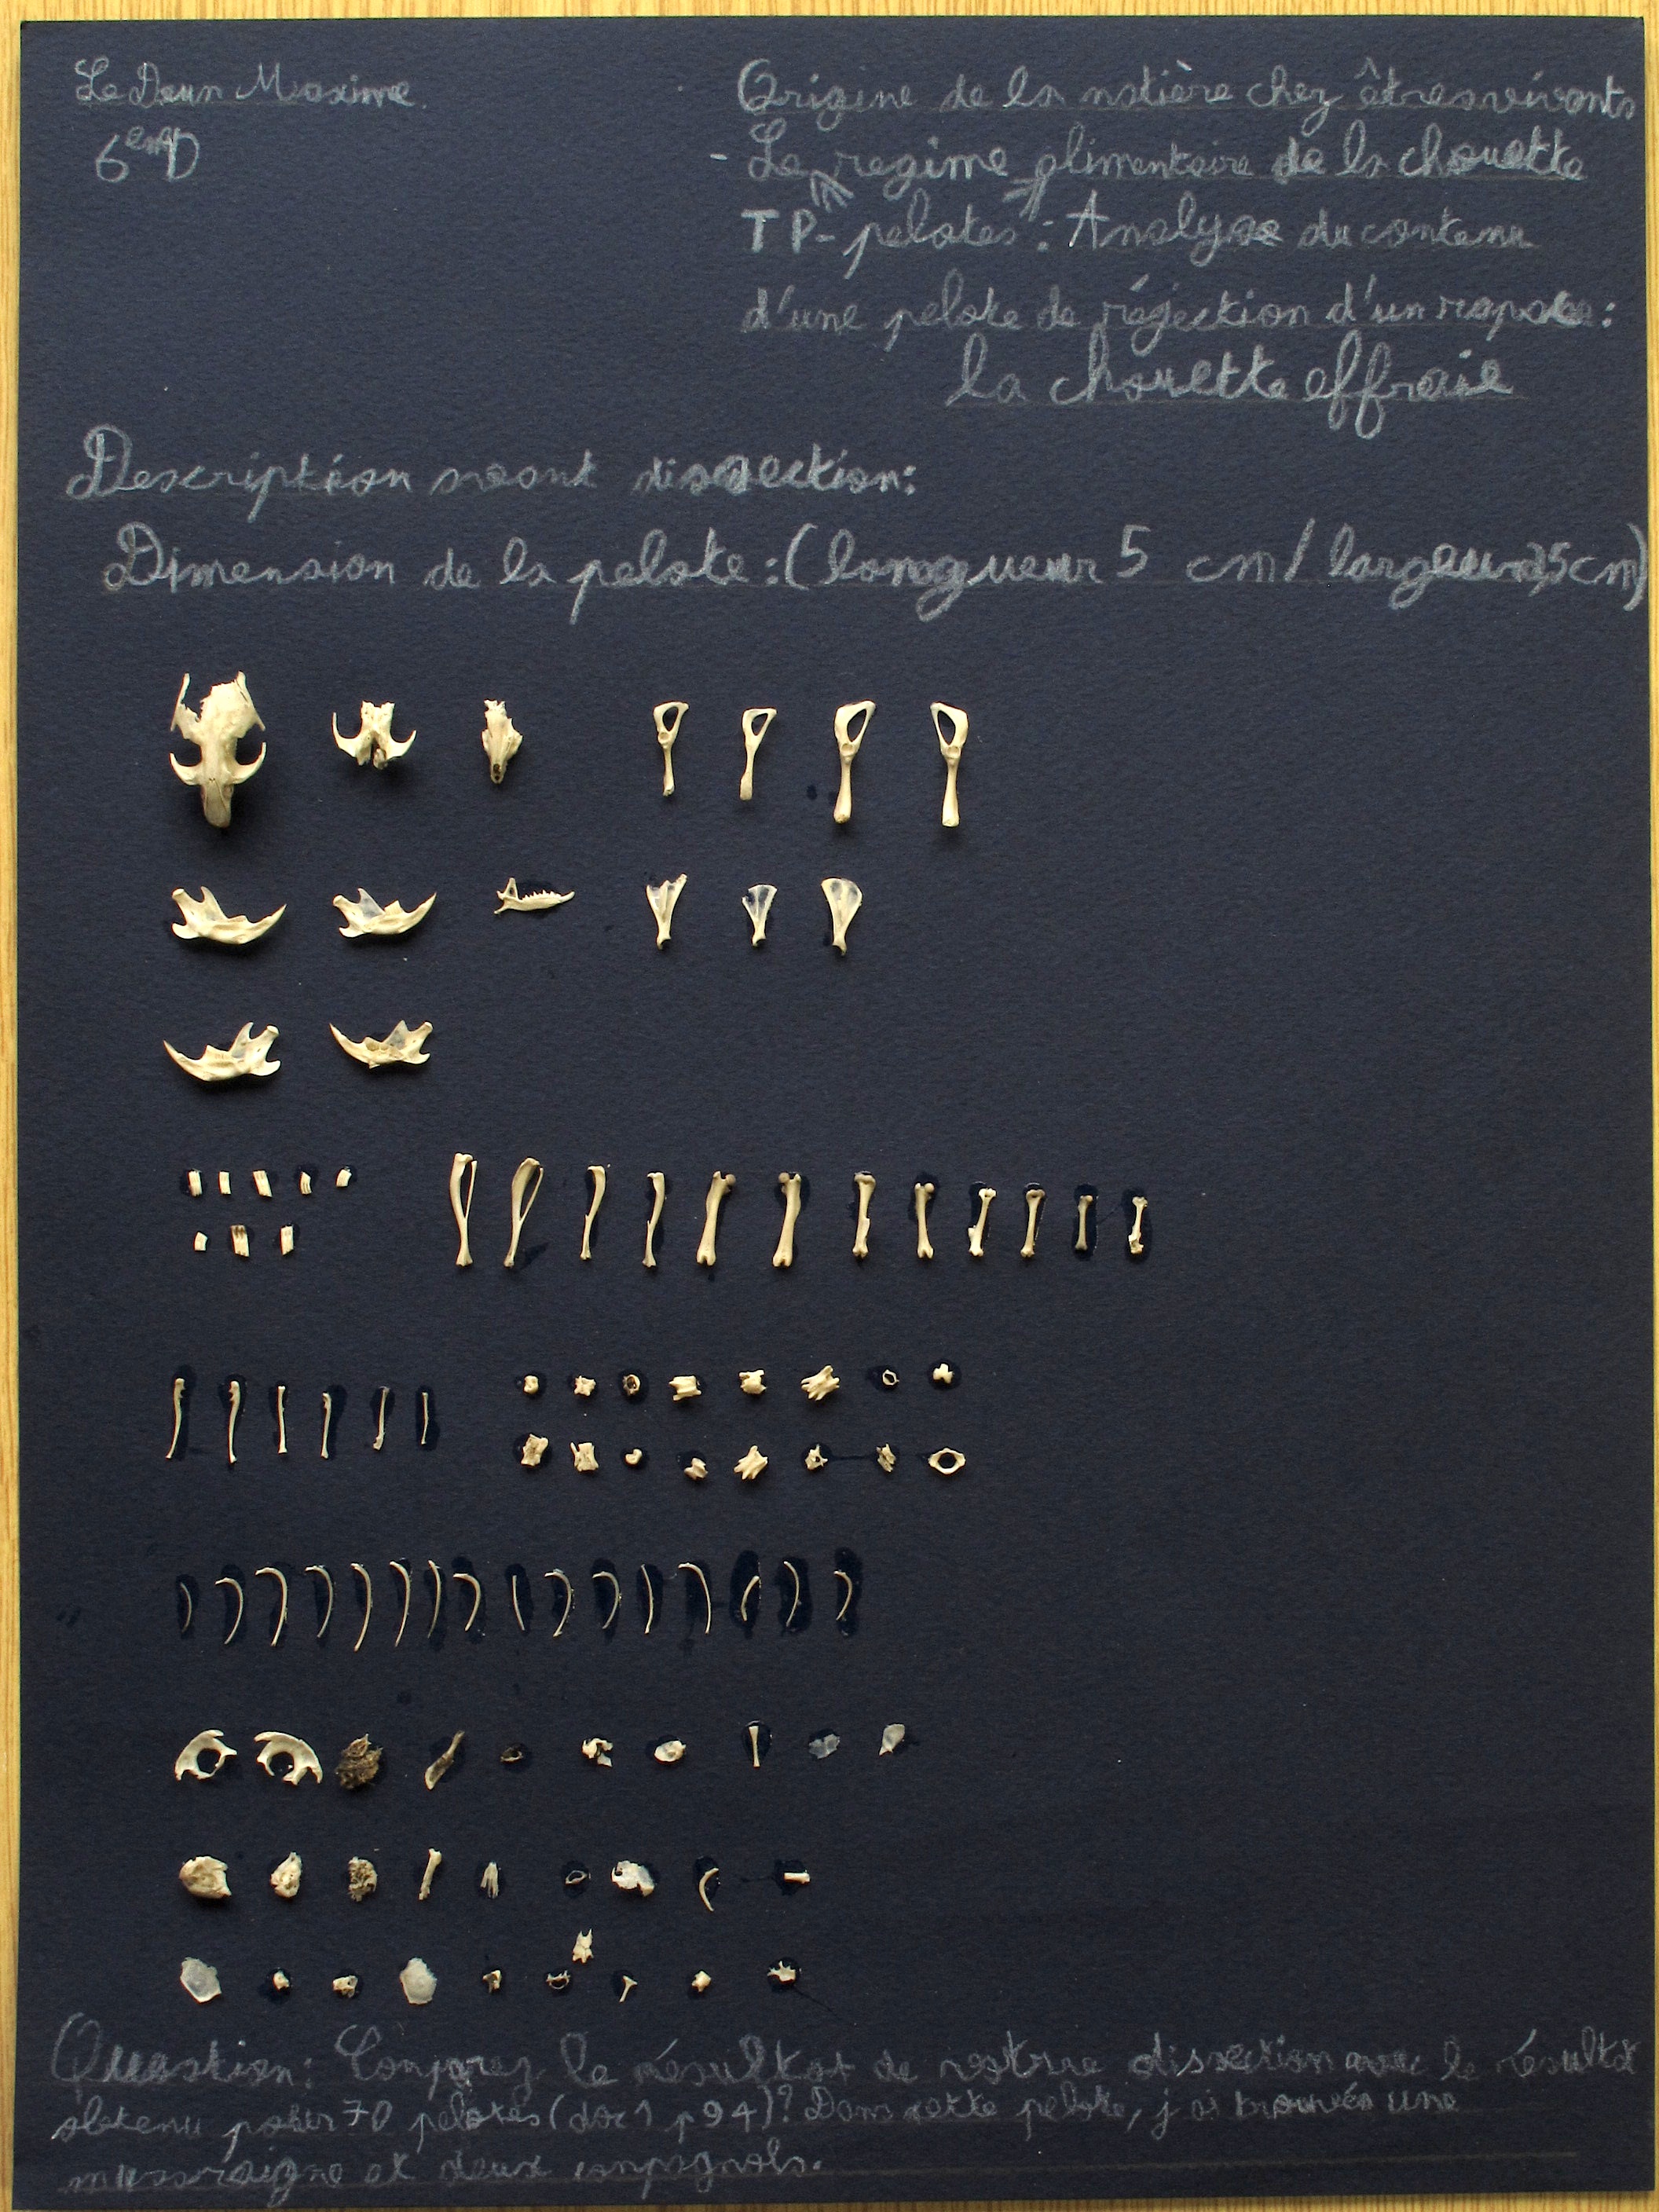 Le Deun Maxime
6emD
Origine de la matière chez êtres vivants
- Le regime alimentaire de la chouette
TP- pelotes : Analyse du contenu
d'une pelote de réjection d'un rapace :
la chouette effraie
Description avant dissection:
Dimension de la pelote : (longueur 5 cm / largeur 2,5cm)
Question: Comparez le résultat de vostrre dissection avec le résultat
obtenu pour 70 pelotes (doc 1 p 94)? Dans cette pelote, j'ai trouvés une
musaraigne et deux canpagnols.